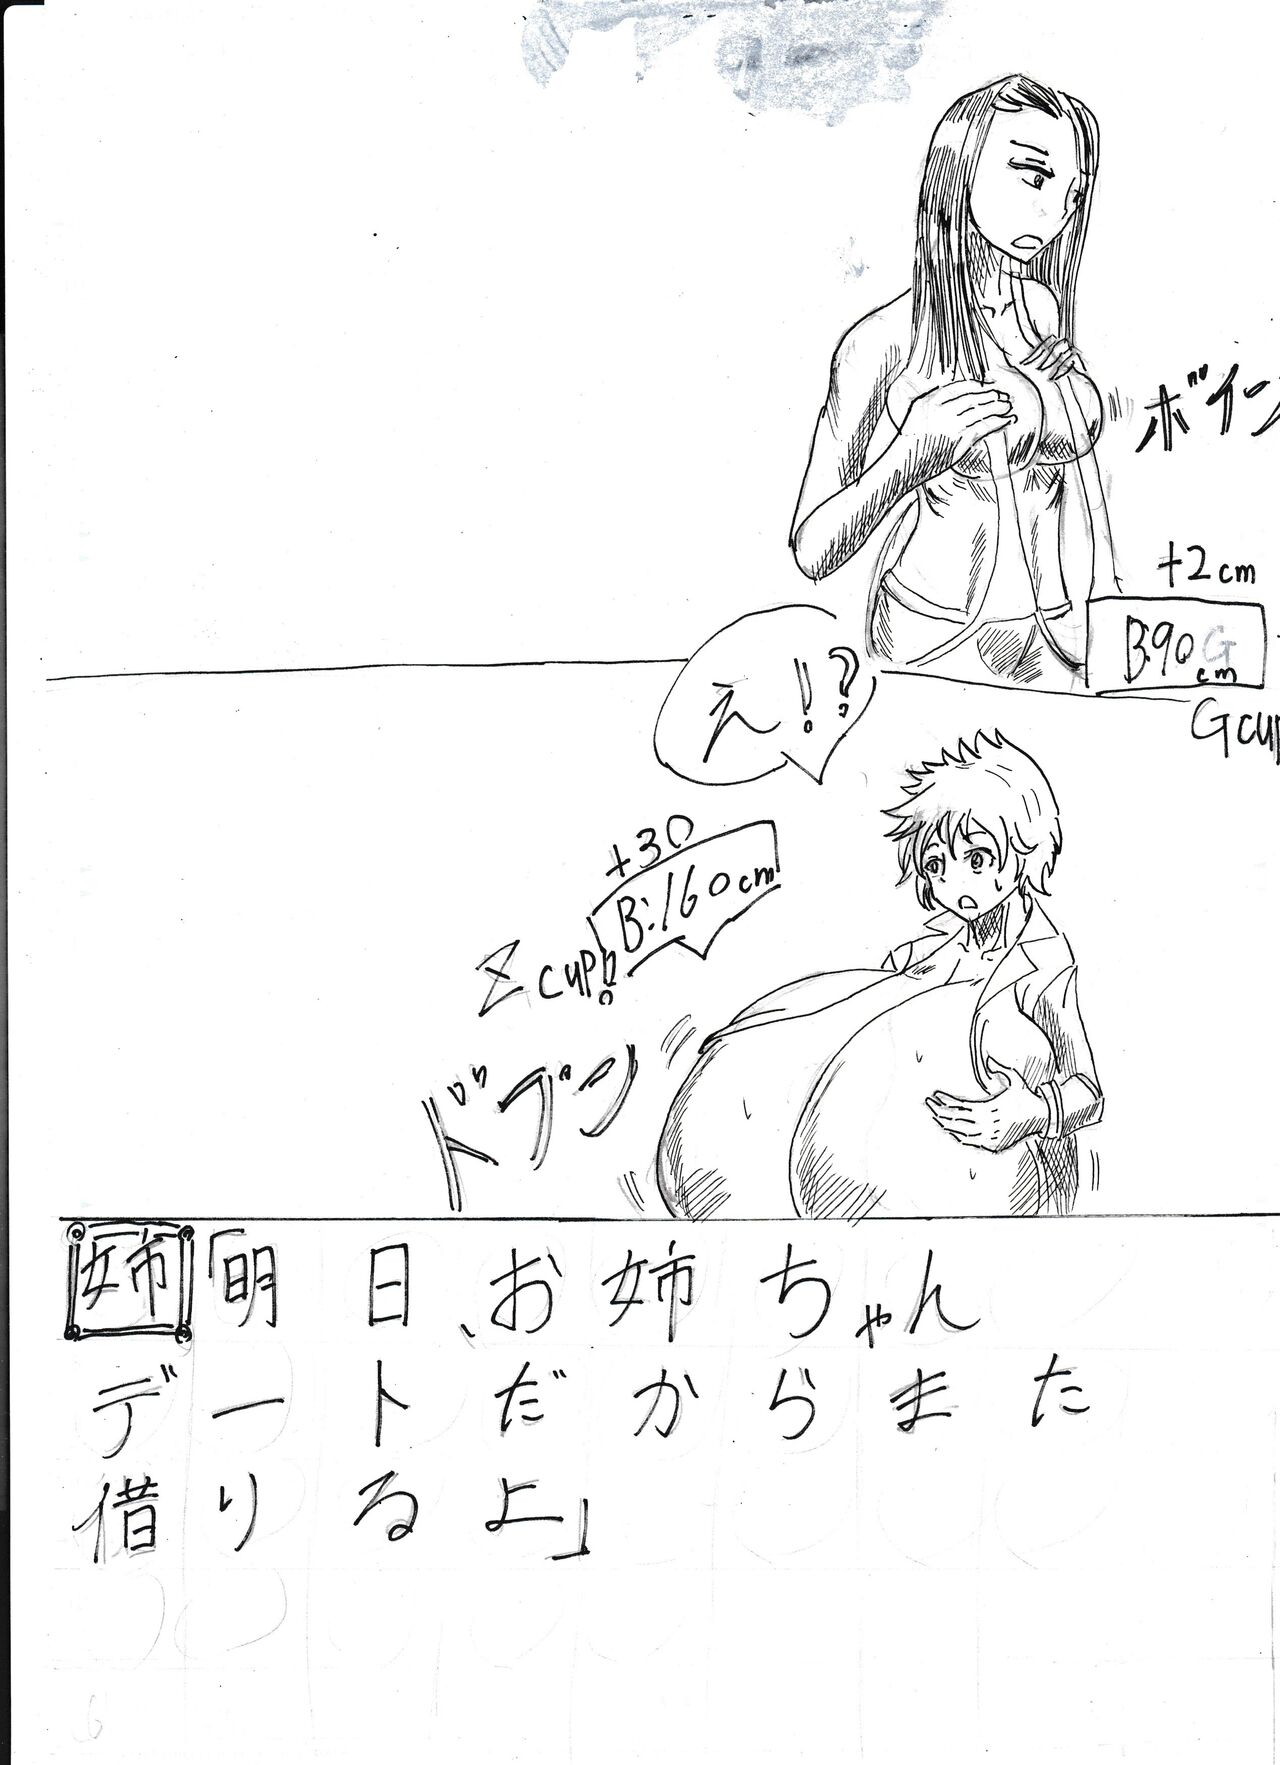 ボイン
+2cm
B:90G
cm
Gcup
え!?
+30
B:160cm
Zcup!?
ドブン
姉「明日、お姉ちゃん
デートだからまた
借りるよ」
6